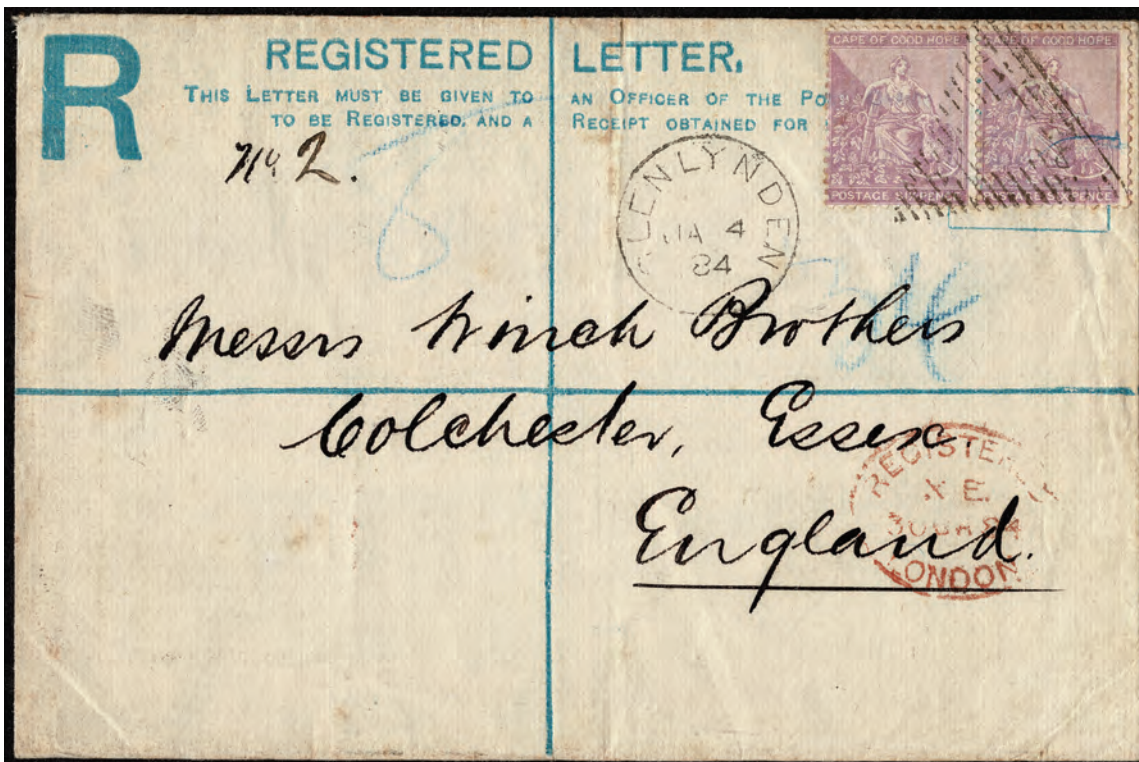 R
REGISTERED LETTER.
THIS LETTER MUST BE GIVEN TO AN OFFICER OF THE PO
TO BE REGISTERED, AND A RECEIPT OBTAINED FOR
CAPE OF GOOD HOPE
POSTAGE SIXPENCE
CAPE OF GOOD HOPE
POSTAGE SIXPENCE
No 2.
8
GLENLYNDEN
JA 4
84
Messrs Winch Brothers
Colchester, Essex
England.
REGISTERED
X E.
30 JA 84
LONDON